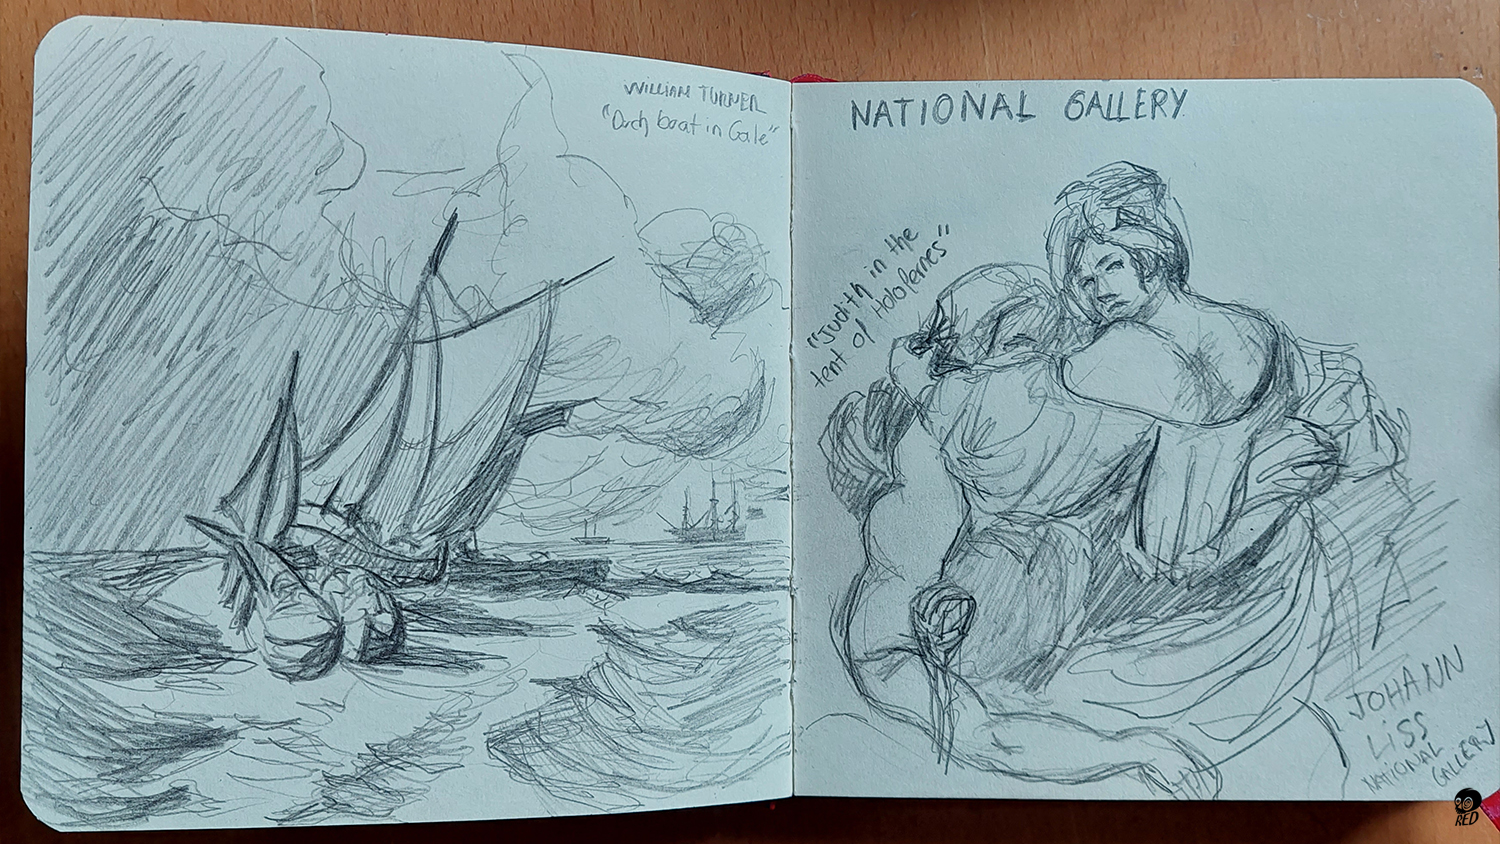 WILLIAM TURNER
"Duch boat in Gale"
NATIONAL GALLERY
"Judith in the
tent of Holofernes"
JOHANN
LiSS
NATIONAL
GALLERY
RED